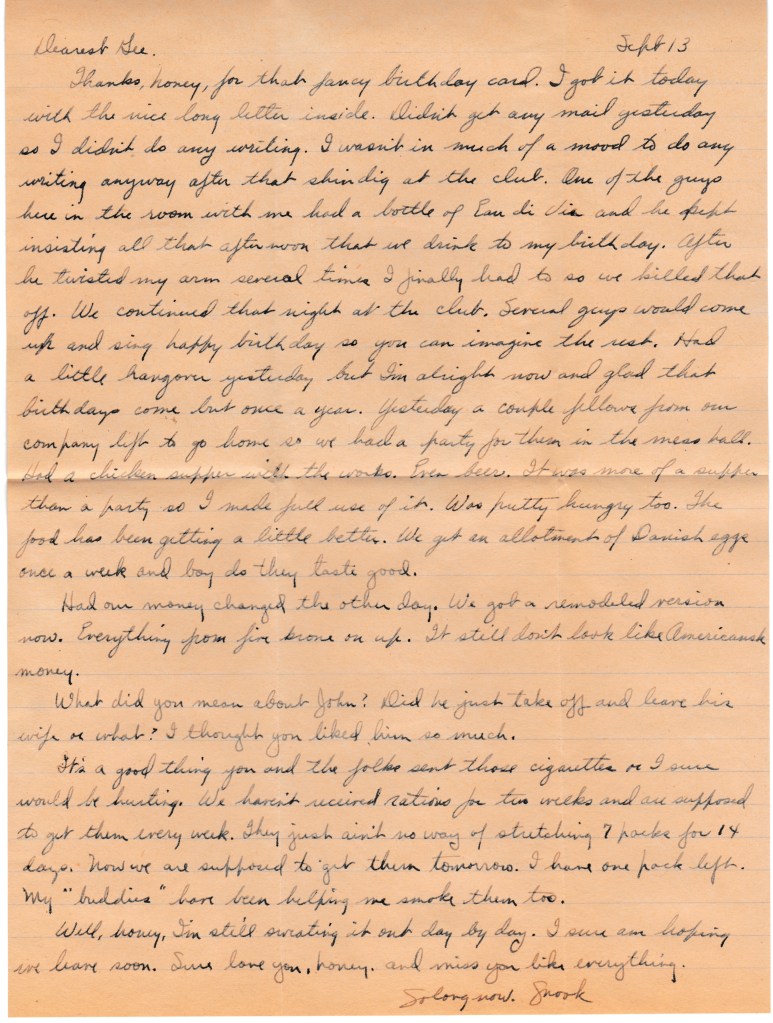 Dearest Gee. Sept 13
Thanks, honey, for that fancy birthday card. I got it today
with the nice long letter inside. Didn't get any mail yesterday
so I didn't do any writing. I wasn't in much of a mood to do any
writing anyway after that shindig at the club. One of the guys
here in the room with me had a bottle of Eau di Vie and he kept
insisting all that afternoon that we drink to my birthday. After
he twisted my arm several times I finally had to so we killed that
off. We continued that night at the club. Several guys would come
up and sing happy birthday so you can imagine the rest. Had
a little hangover yesterday but I'm alright now and glad that
birthdays come but once a year. Yesterday a couple fellows from our
company left to go home so we had a party for them in the mess hall.
Had a chicken supper with the works. Even beer. It was more of a supper
than a party so I made full use of it. Was pretty hungry too. The
food has been getting a little better. We get an allotment of Danish eggs
once a week and boy do they taste good.
Had our money changed the other day. We got a remodeled version
now. Everything from five krone on up. It still don't look like Americansk
money.
What did you mean about John? Did he just take off and leave his
wife or what? I thought you liked him so much.
It's a good thing you and the folks sent those cigarettes or I sure
would be hurting. We haven't received rations for two weeks and are supposed
to get them every week. They just ain't no way of stretching 7 packs for 14
days. Now we are supposed to get them tomorrow. I have one pack left.
My "buddies" have been helping me smoke them too.
Well, honey, I'm still sweating it out day by day. I sure am hoping
we leave soon. Sure love you, honey. and miss you like everything.
So long now. Snook